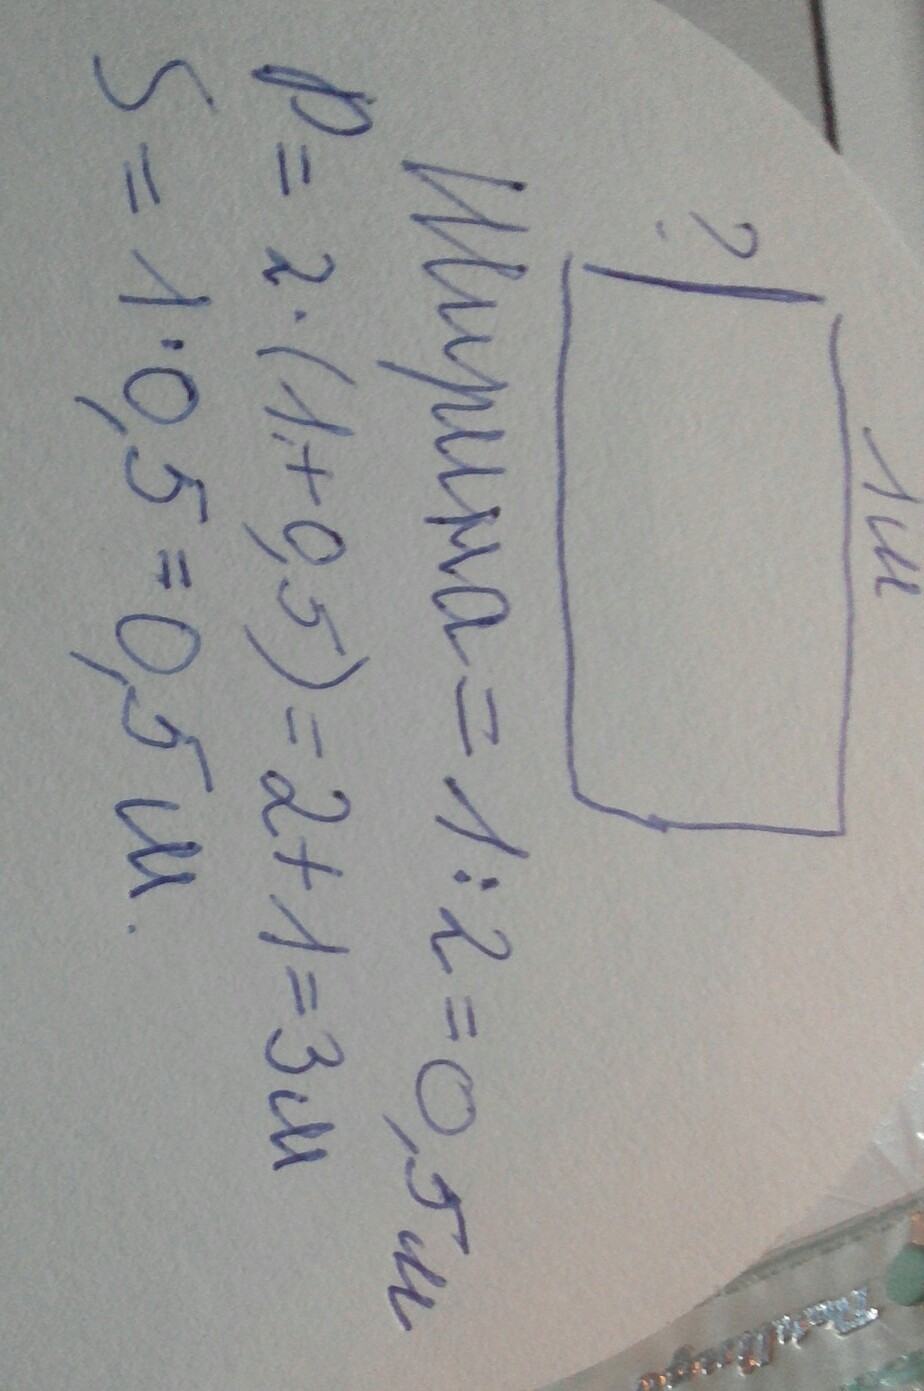 1м
?
Ширина = 1 : 2 = 0,5 м
P = 2 · (1 + 0,5) = 2 + 1 = 3 м
S = 1 · 0,5 = 0,5 м.